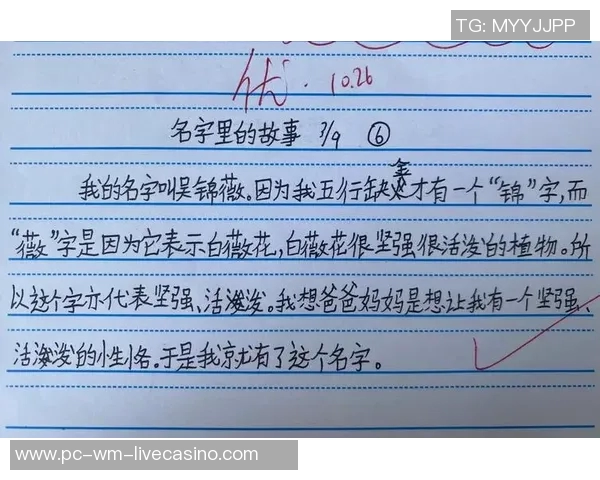 TG: MYYJJPP
优 · 10.26
名字里的故事 3/9 ⑥
我的名字叫吴锦薇。因为我五行缺金才有一个“锦”字,而
“薇”字是因为它表示白薇花,白薇花很坚强很活泼的植物。所
以这个字亦代表坚强、活泼泼。我想爸爸妈妈是想让我有一个坚强、
活泼泼的性格。于是我就有了这个名字。
www.pc-wm-livecasino.com